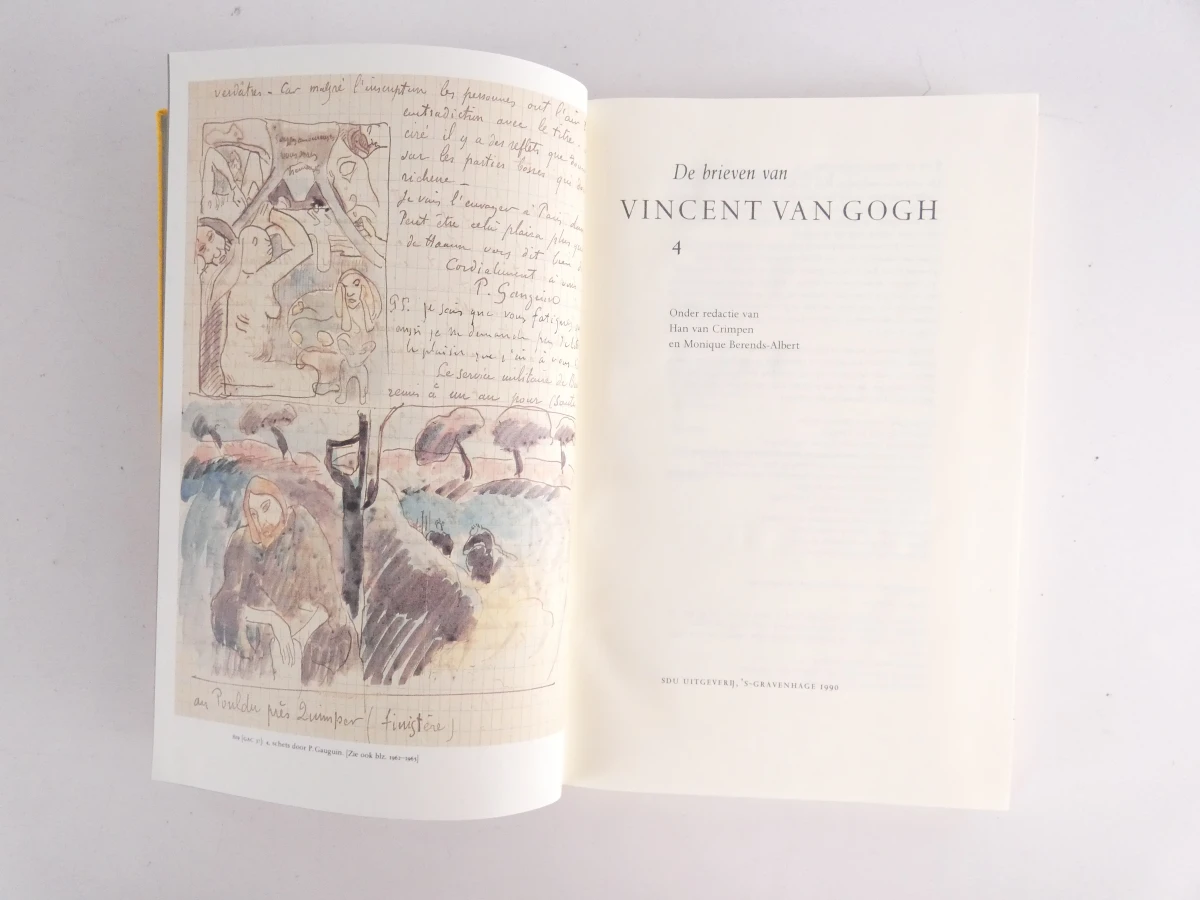 verdâtres - Car malgré l'inscription les personnes ont l'air
contradiction avec le titre -
ciré il y a des reflets que
sur les parties bosses qui
richesse -
Je vais l'envoyer à Paris
Peut être celui plaira plus
de Haan vous dit bien
Cordialement à vous
P. Gauguin
PS. je sais que vous fatiguez
aussi je ne demande pas de
le plaisir que j'ai à vous
Le service militaire de
remis à un an pour
au Pouldu près Quimper (finistère)
schets door P. Gauguin. [Zie ook blz.
De brieven van
VINCENT VAN GOGH
4
Onder redactie van
Han van Crimpen
en Monique Berends-Albert
SDU UITGEVERIJ, 'S-GRAVENHAGE 1990